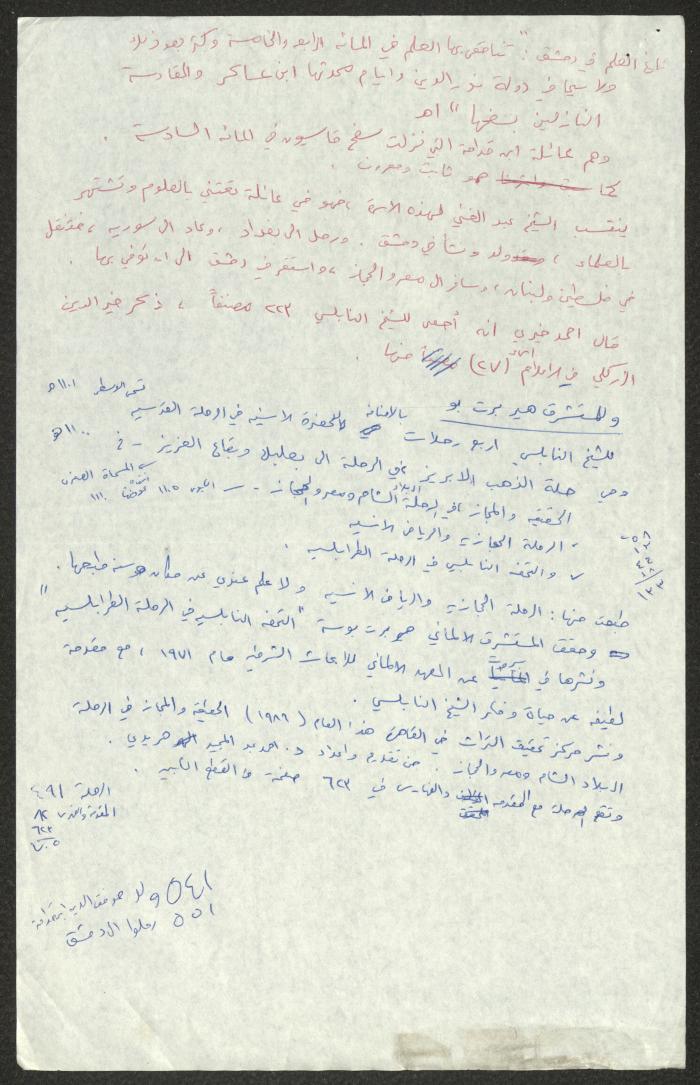 العلم في دمشق : " تناقص بها العلم في المائه الرابعه والخامسة وكثر بعد ذلك
ولا سيما في دولة نور الدين وايام محدثها ابن عساكر والمقادسة
النازلين بسفحها " اهـ
وهم عائلة ابن قدامة التي نزلت سفح قاسيون في المائه السادسة .
كما هو ثابت ومعروف .
ينتسب الشيخ عبد الغني لهذه الاسرة ، فهو في عائلة تعتني بالعلوم وتشتهر
بالعلماء ، ولد ونشأ في دمشق . ورحل الى بغداد ، وعاد الى سوريه ، فتنقل
في فلسطين ولبنان ، وسافر الى مصر والحجاز ، واستقر في دمشق الى ان توفي بها .
قال احمد خيري انه أحصى للشيخ النابلسي ٢٢٣ مصنفاً ، ذكر خير الدين
الزركلي في الاعلام (٢٧) منها .
١١٠١ هـ
وللمستشرق هير برت بو بالاضافة للحضرة الانسيه في الرحلة القدسيه
١١٠٠ هـ
للشيخ النابلسي اربع رحلات
وهي حلة الذهب الابريز في الرحلة الى بعلبك وبقاع العزيز -
الحقيقه والمجاز في رحلة بلاد الشام ومصر والحجاز - ١١٠٥
الرحلة الحجازيه والرياض الانسيه
والتحفه النابلسيه في الرحلة الطرابلسيه .
طبعت منها : الرحلة الحجازيه والرياض الانسيه ولا علم عندي عن مكان وسنة طبعها .
وحقق المستشرق الالماني هيربرت بوسة " التحفه النابلسيه في الرحلة الطرابلسيه "
ونشرها في بيروت عن المعهد الالماني للابحاث الشرقيه عام ١٩٧١ ، مع مقدمة
لطيفه عن حياة وفكر الشيخ النابلسي .
ونشر مركز تحقيق التراث في القاهرة هذا العام (١٩٨٦) الحقيقة والمجاز في الرحلة
الى بلاد الشام ومصر والحجاز . من تقديم واعداد د. احمد عبد المجيد هريدي .
وتقع الرحلة مع المقدمه والفهارس في ٦٢٣ صفحة من القطع الكبير .
الرحلة ٤٩١
٦٢٣
٥٤١ ولد موفق الدين ابن قدامة
٥٥١ رحلوا الى دمشق